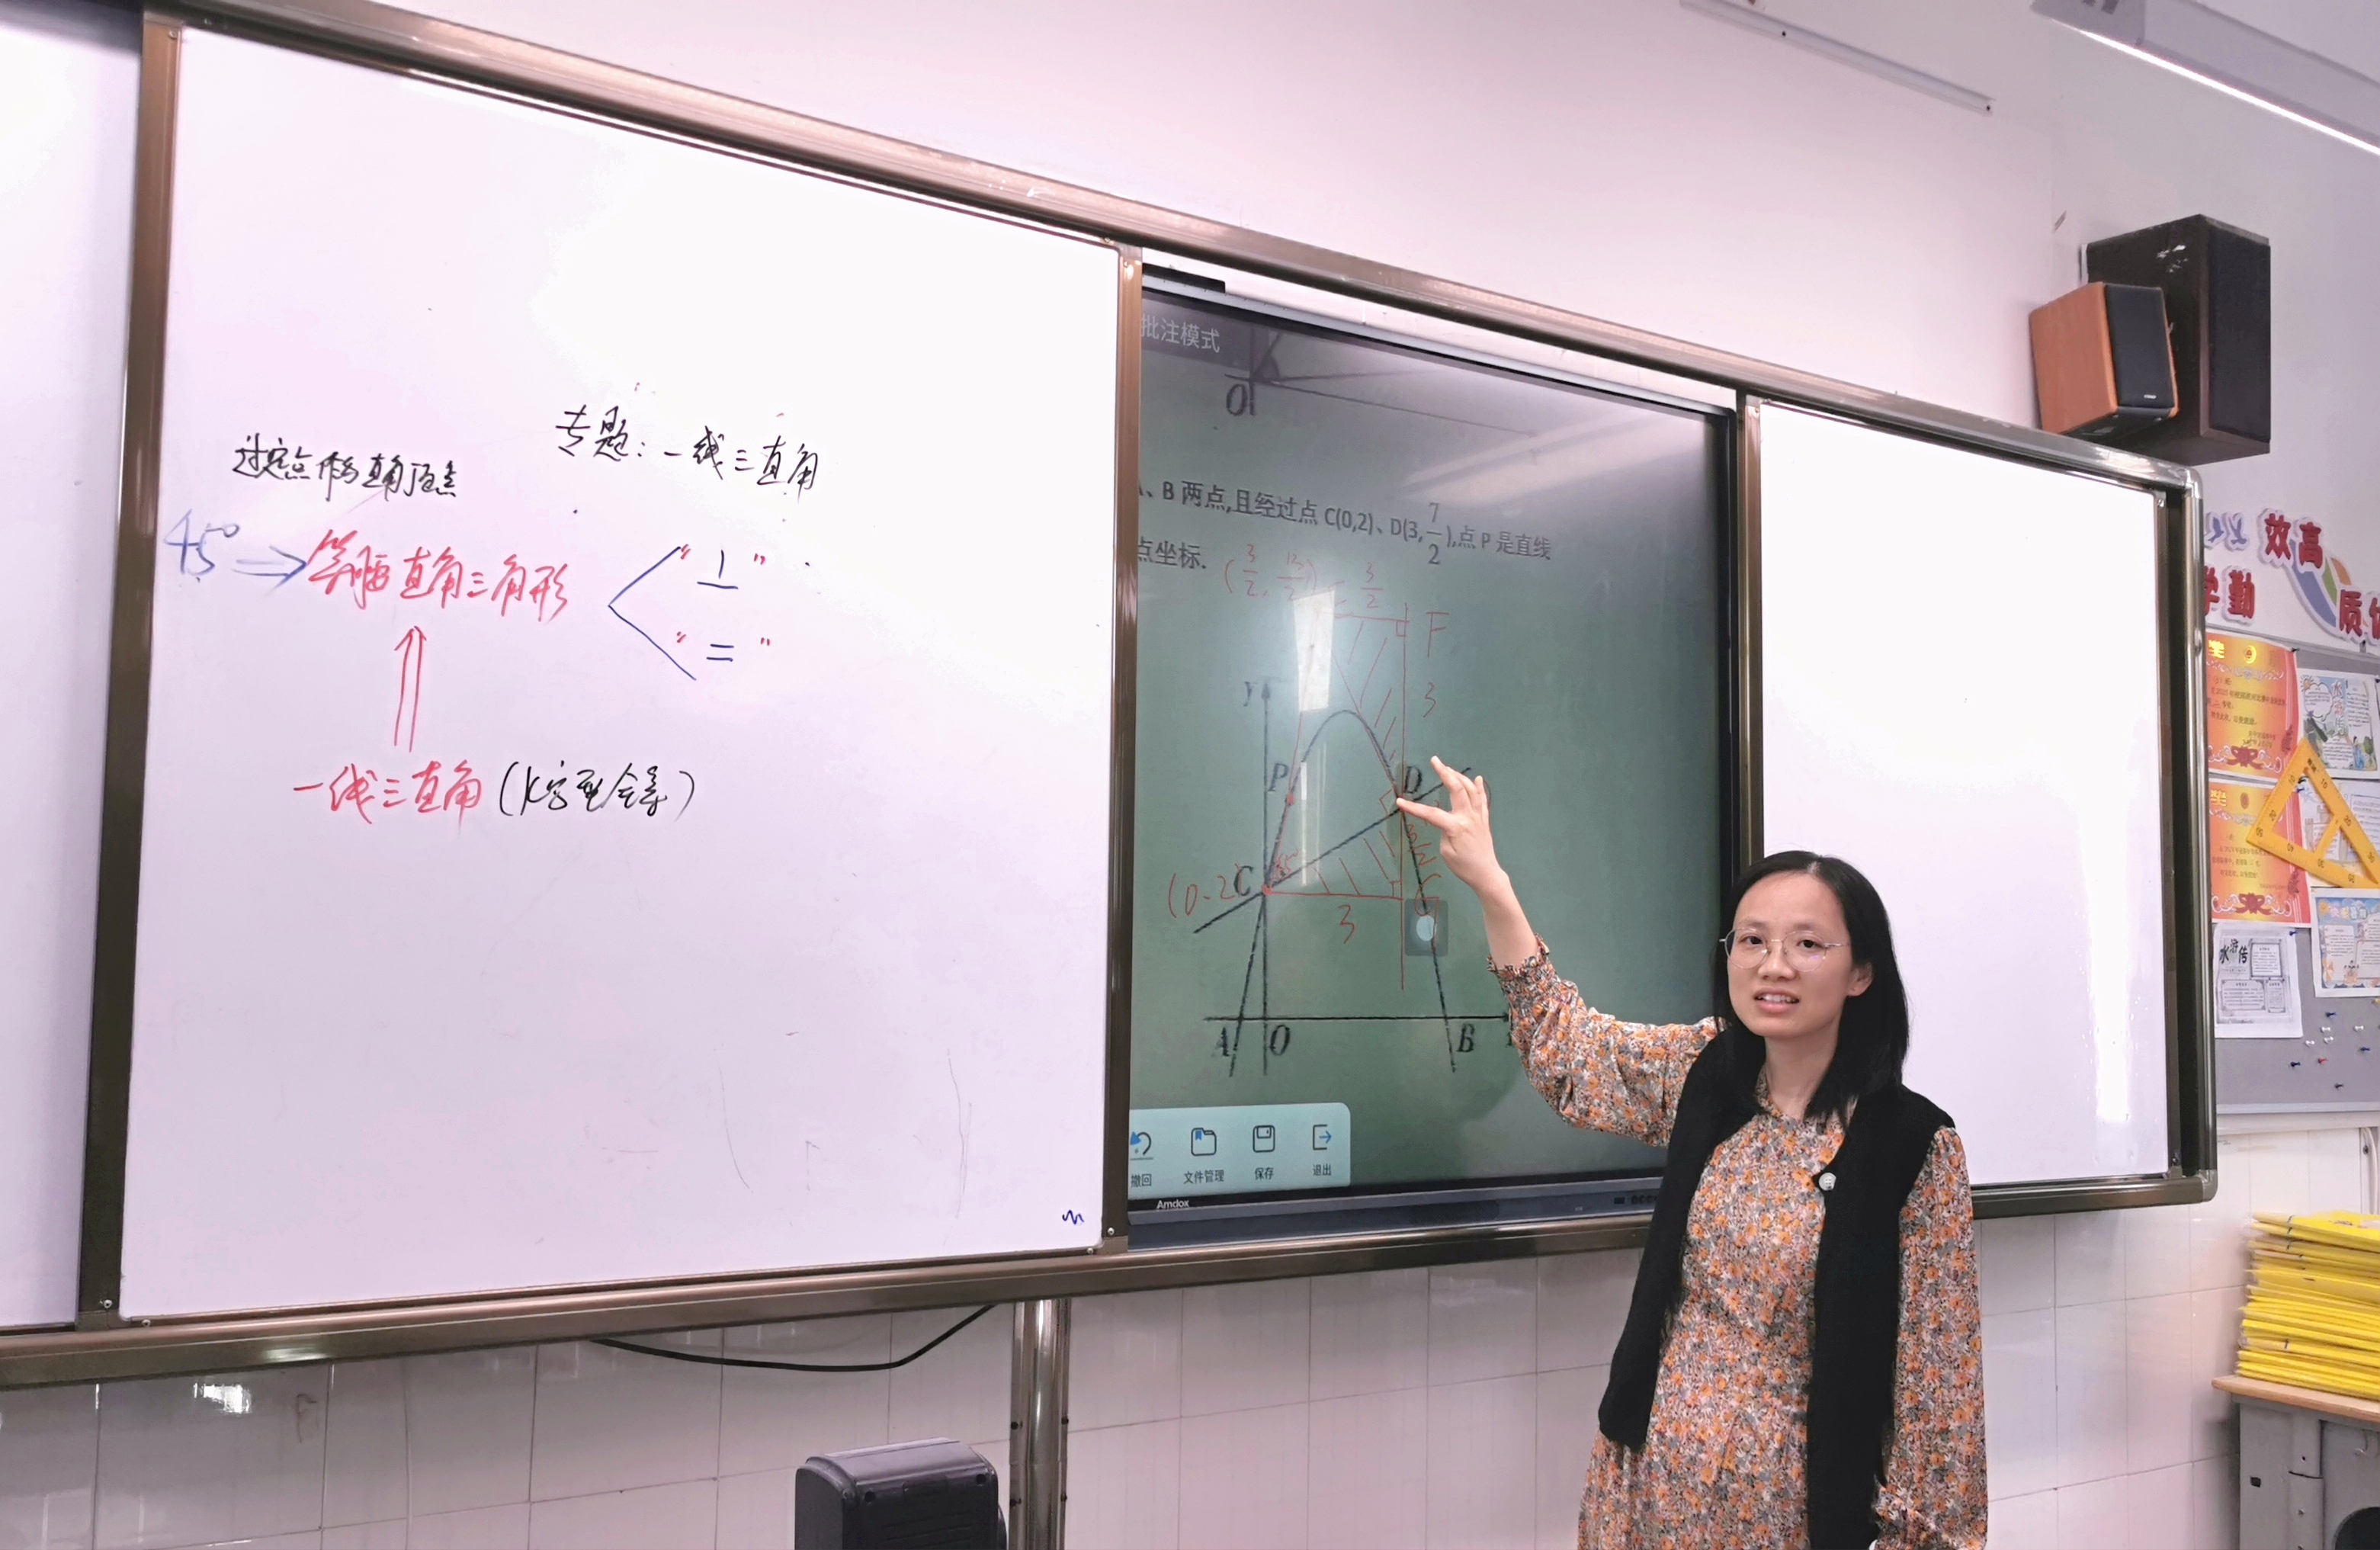 专题：一线三直角
过定点作 直角顶点
45° ⇒ 等腰直角三角形
"⊥"
"="
一线三直角（K字型全等）
批注模式
O
、B 两点,且经过点 C(0,2)、D(3,7/2),点 P 是直线
点坐标.
3/2
F
3
y
P
D
C
(0,2
45
3
A
O
B
撤回
文件管理
保存
退出
Amdox
效高
学勤
质
水浒传